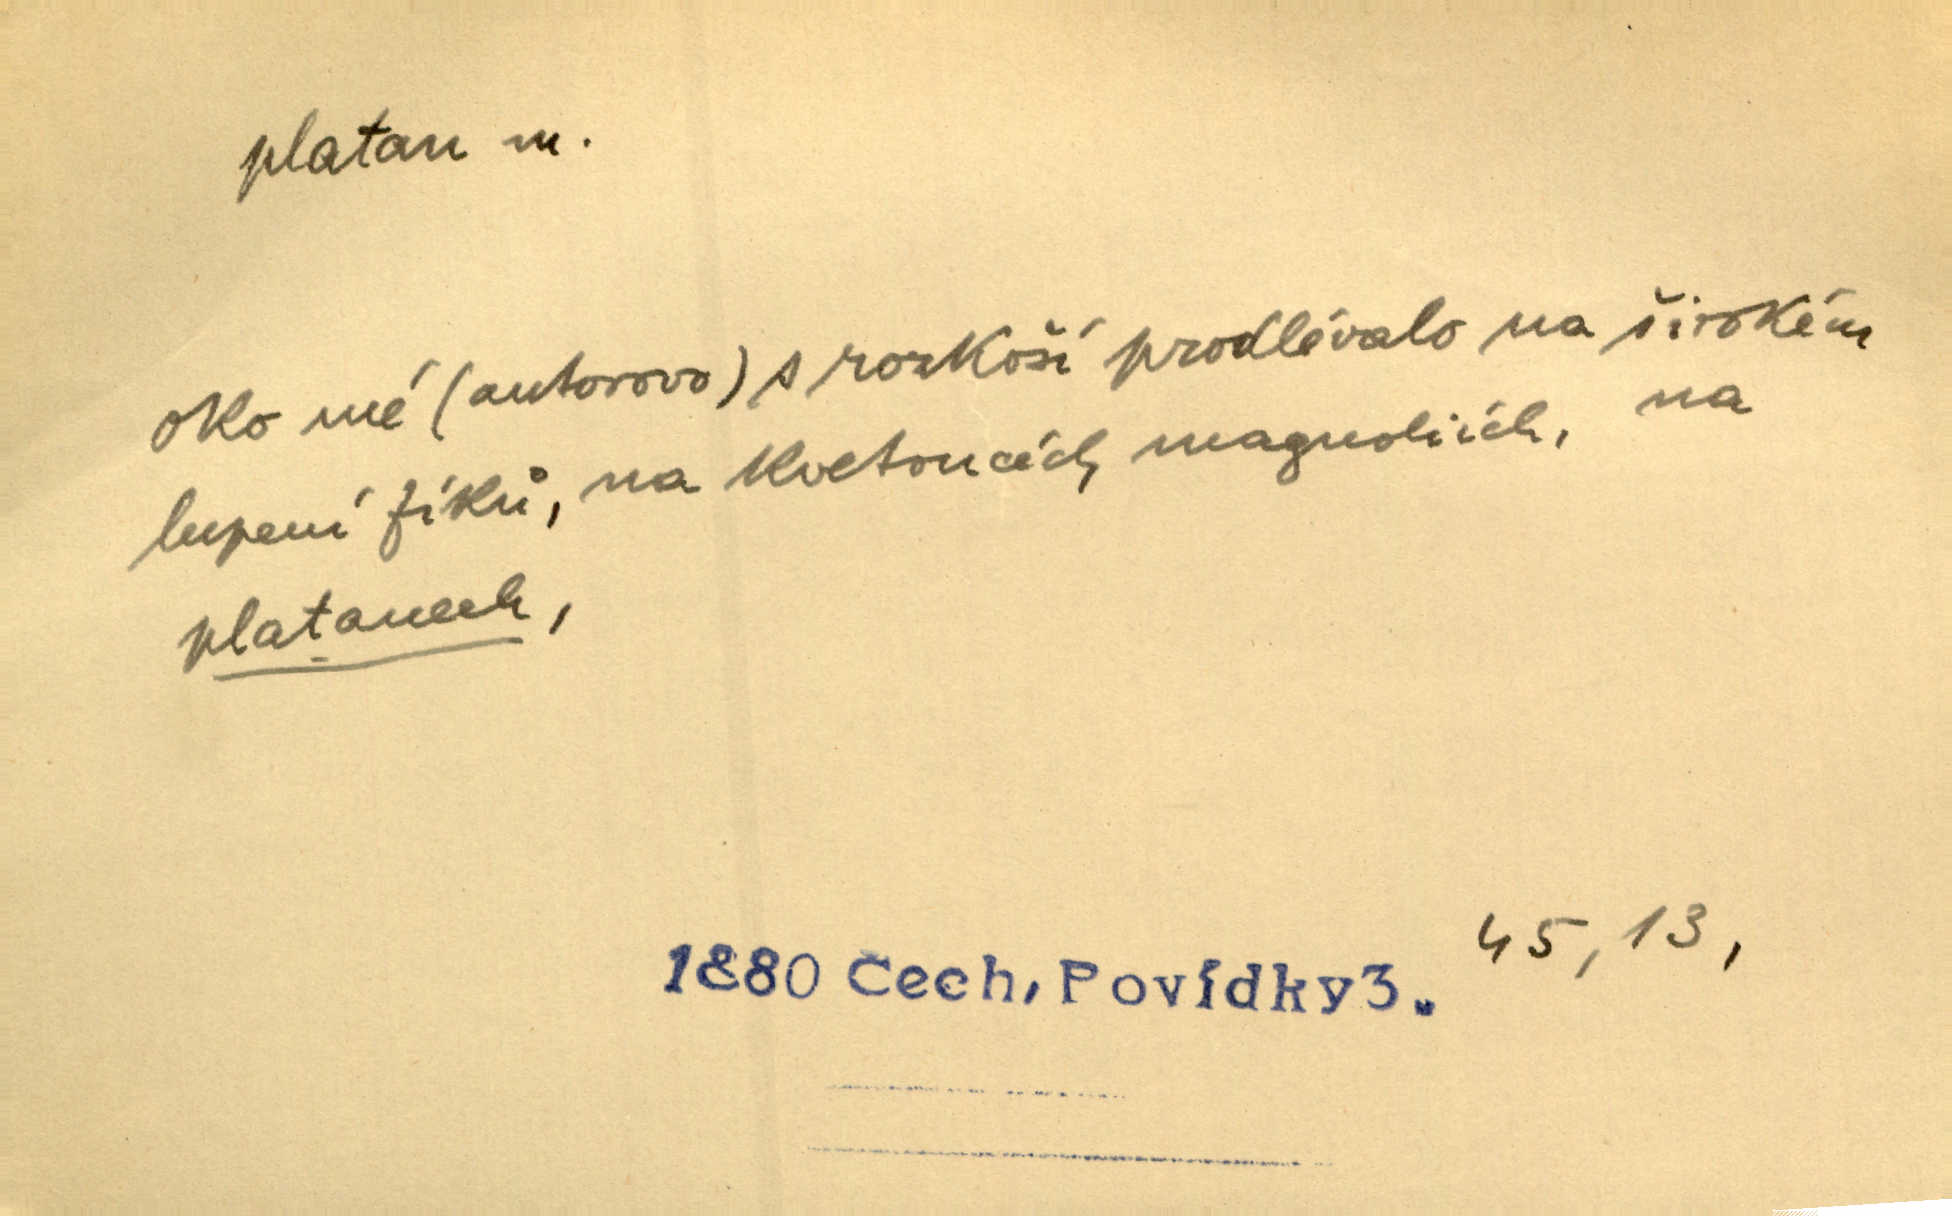 platan m.
oko mé (autorovo) s rozkoší prodlévalo na širokém
lupení fíků, na kvetoucích magnoliích, na
platanech,
45, 13,
1880 Čech, Povídky 3.